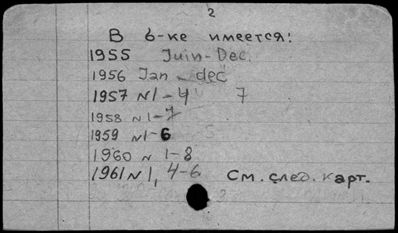 2
В б-ке имеется:
1955 Juin-Dec.
1956 Jan - dec
1957 N1-4 7
1958 N1-7
1959 N1-6
1960 N 1-8
1961 N 1, 4-6 См. след. карт.